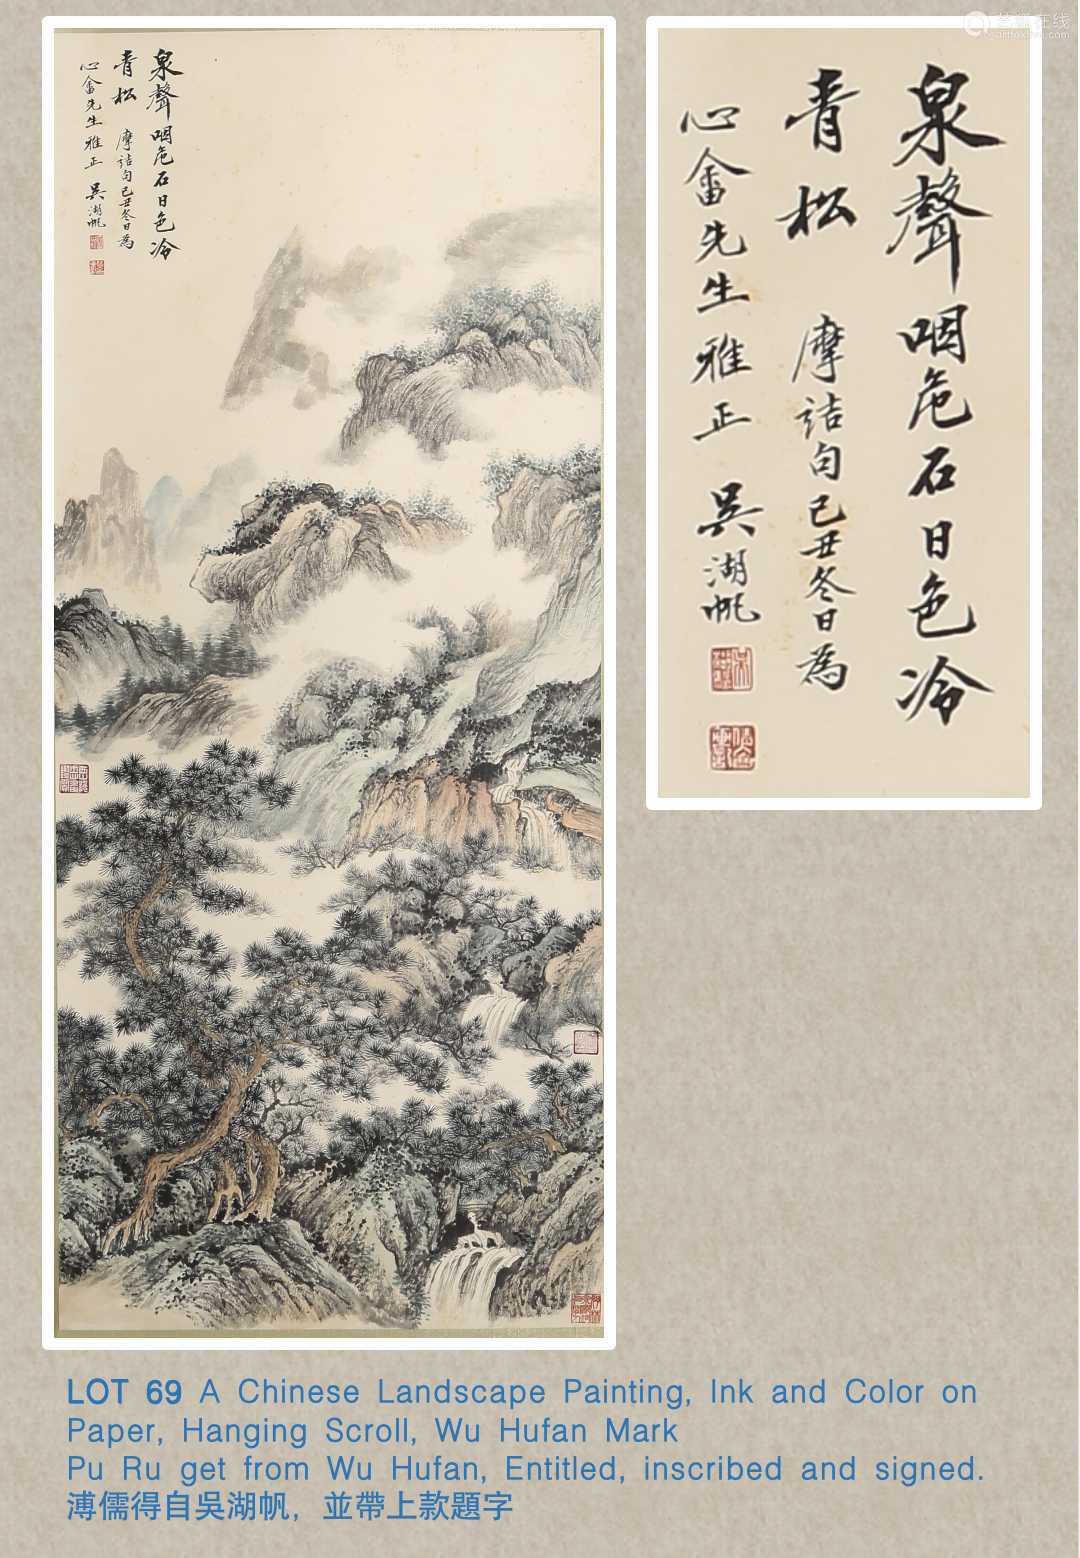 泉聲咽危石日色冷
青松 摩詰句己丑冬日為
心畬先生雅正 吳湖帆
泉聲咽危石日色冷
青松 摩詰句己丑冬日為
心畬先生雅正 吳湖帆
LOT 69 A Chinese Landscape Painting, Ink and Color on
Paper, Hanging Scroll, Wu Hufan Mark
Pu Ru get from Wu Hufan, Entitled, inscribed and signed.
溥儒得自吳湖帆，並帶上款題字